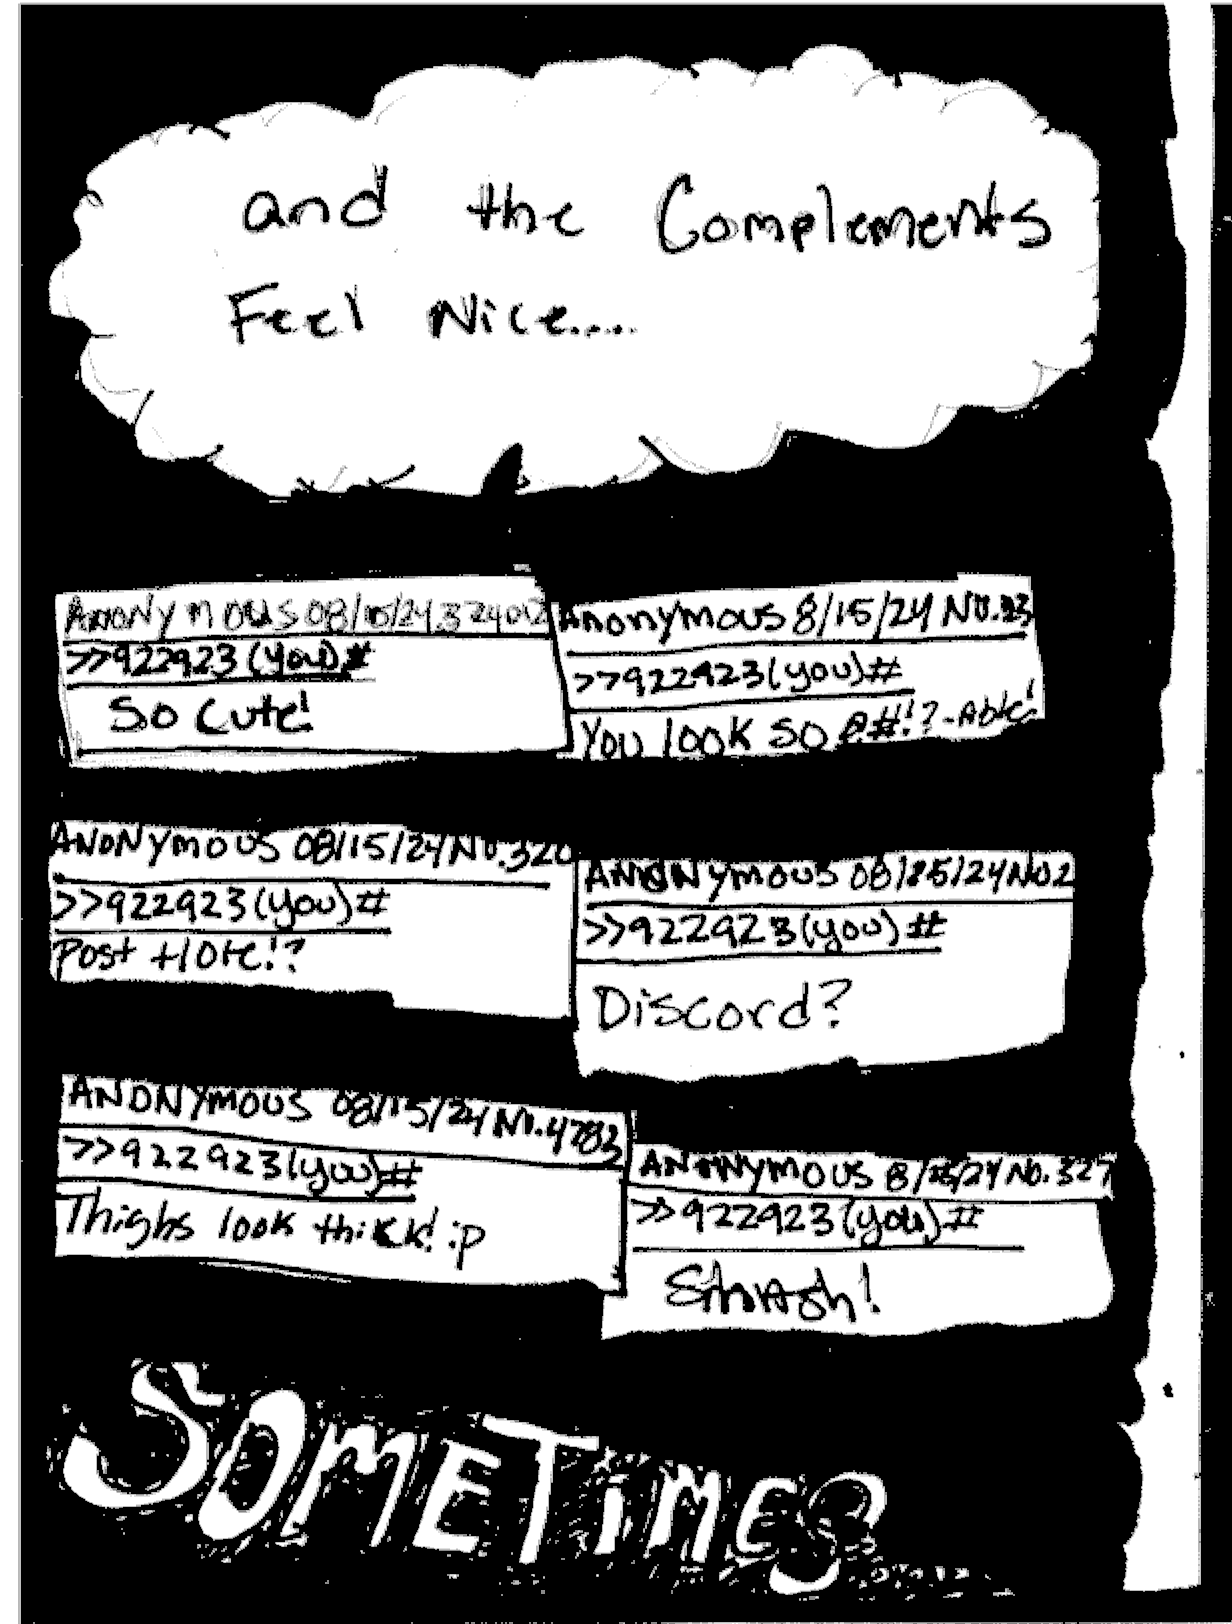 and the Complements
Feel Nice....
Anonymous 08/15/24 324012
>>922923 (you) #
So Cute!
Anonymous 8/15/24 No.23
>>922923 (you) #
You look so @#!?-Able!
Anonymous 08/15/24 No.320
>>922923 (you) #
Post More!?
Anonymous 08/15/24 No2
>>922923 (you) #
Discord?
Anonymous 08/15/24 No.4783
>>922923 (you) #
Thighs look thickk! :p
Anonymous 8/15/24 No.327
>>922923 (you) #
Smash!
SOMETIMES